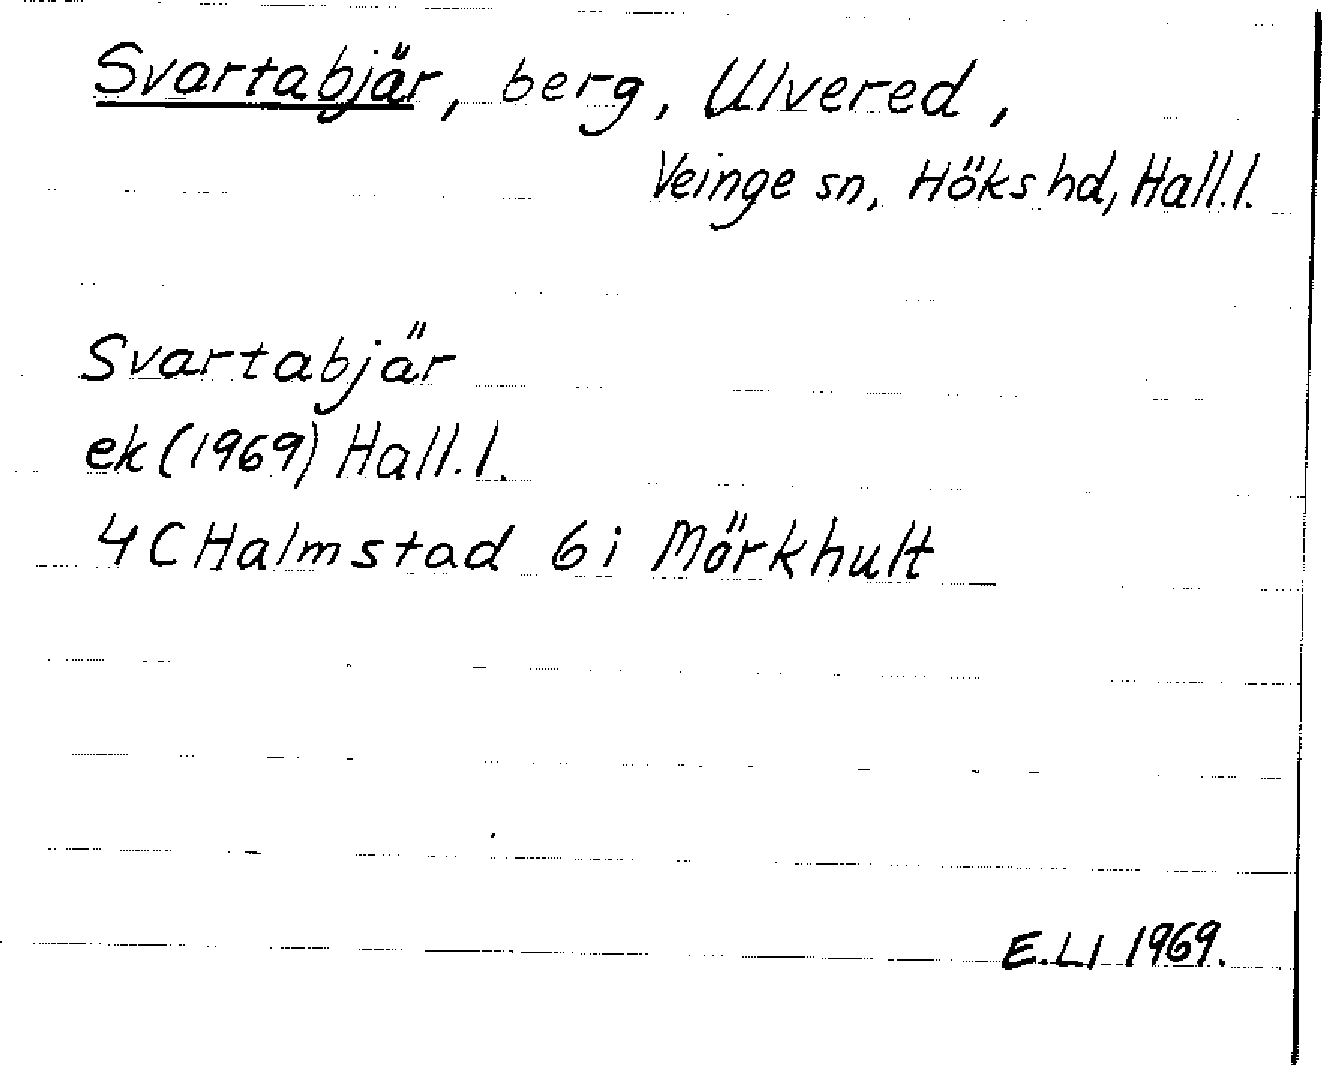 Svartabjär, berg, Ulvered,
Veinge sn, Höks hd, Hall.l.
Svartabjär
ek (1969) Hall.l.
4C Halmstad 6 i Mörkhult
E.LI 1969.